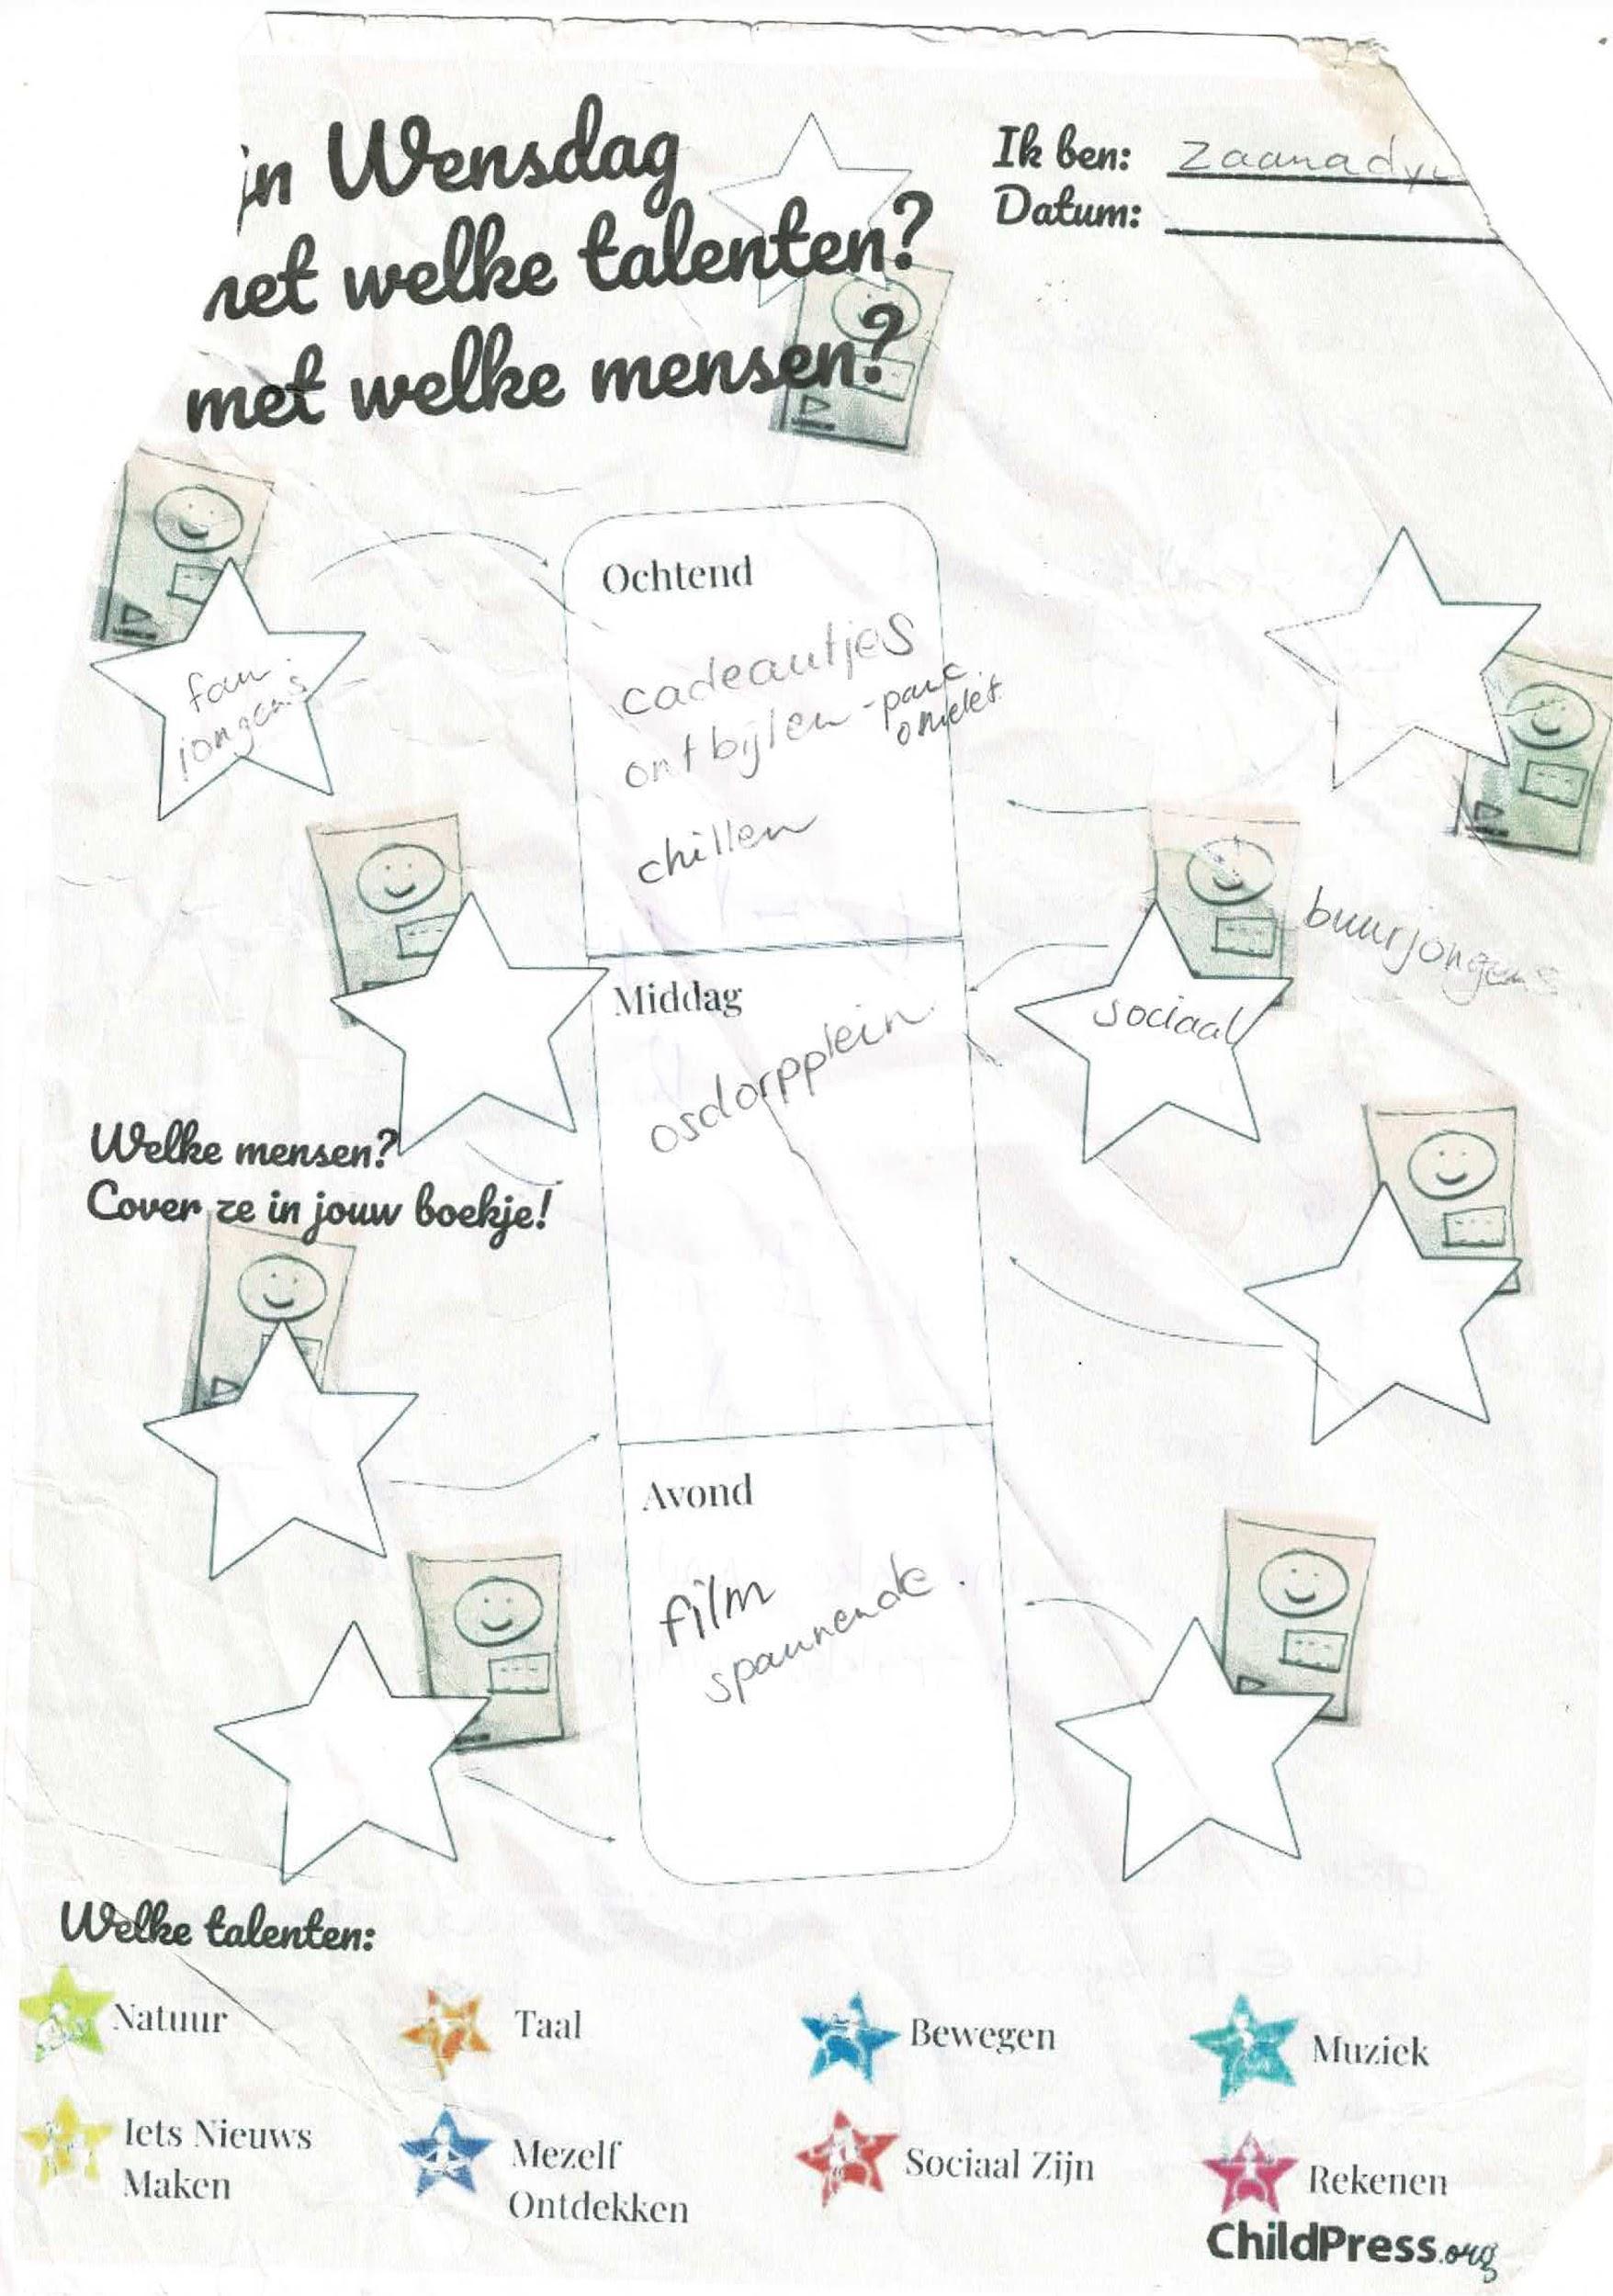 jn Wensdag
met welke talenten?
met welke mensen?
Ik ben:
Datum:
fam
jongens
Ochtend
cadeautjes
ontbijten - panc
omelet
chillen
buurjongens
sociaal
Middag
osdorpplein
Welke mensen?
Cover ze in jouw boekje!
Avond
film
spannende.
Welke talenten:
Natuur
Taal
Bewegen
Muziek
Iets Nieuws
Maken
Mezelf
Ontdekken
Sociaal Zijn
Rekenen
ChildPress.org